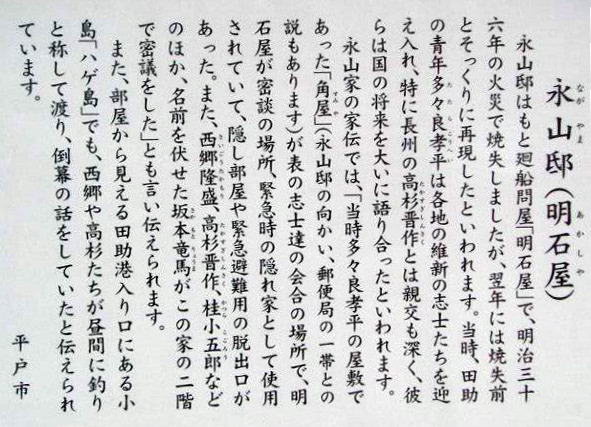 永山邸(明石屋)
ながやま あかしや
永山邸はもと廻船問屋「明石屋」で、明治三十
六年の火災で焼失しましたが、翌年には焼失前
とそっくりに再現したといわれます。当時、田助
の青年多々良孝平は各地の維新の志士たちを迎
たたらこうへい
え入れ、特に長州の高杉晋作とは親交も深く、彼
たかすぎしんさく
らは国の将来を大いに語り合ったといわれます。
永山家の家伝では、「当時多々良孝平の屋敷で
あった「角屋」(永山邸の向かい、郵便局の一帯との
すみや
説もあります)が表の志士達の会合の場所で、明
石屋が密談の場所、緊急時の隠れ家として使用
されていて、隠し部屋や緊急避難用の脱出口が
あった。また、西郷隆盛、高杉晋作、桂小五郎など
さいごうたかもり たかすぎしんさく かつらこごろう
のほか、名前を伏せた坂本竜馬がこの家の二階
さかもとりょうま
で密議をした」とも言い伝えられます。
また、部屋から見える田助港入り口にある小
島「ハゲ島」でも、西郷や高杉たちが昼間に釣り
と称して渡り、倒幕の話をしていたと伝えられ
ています。
平戸市